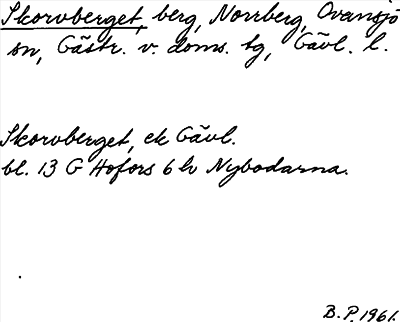 Skorvberget, berg, Norrberg, Ovansjö
sn, Gästr. v. doms. tg, Gävl. l.
Skorvberget, ek Gävl.
bl. 13 G Hofors 6 h Nybodarna.
B.P. 1961.